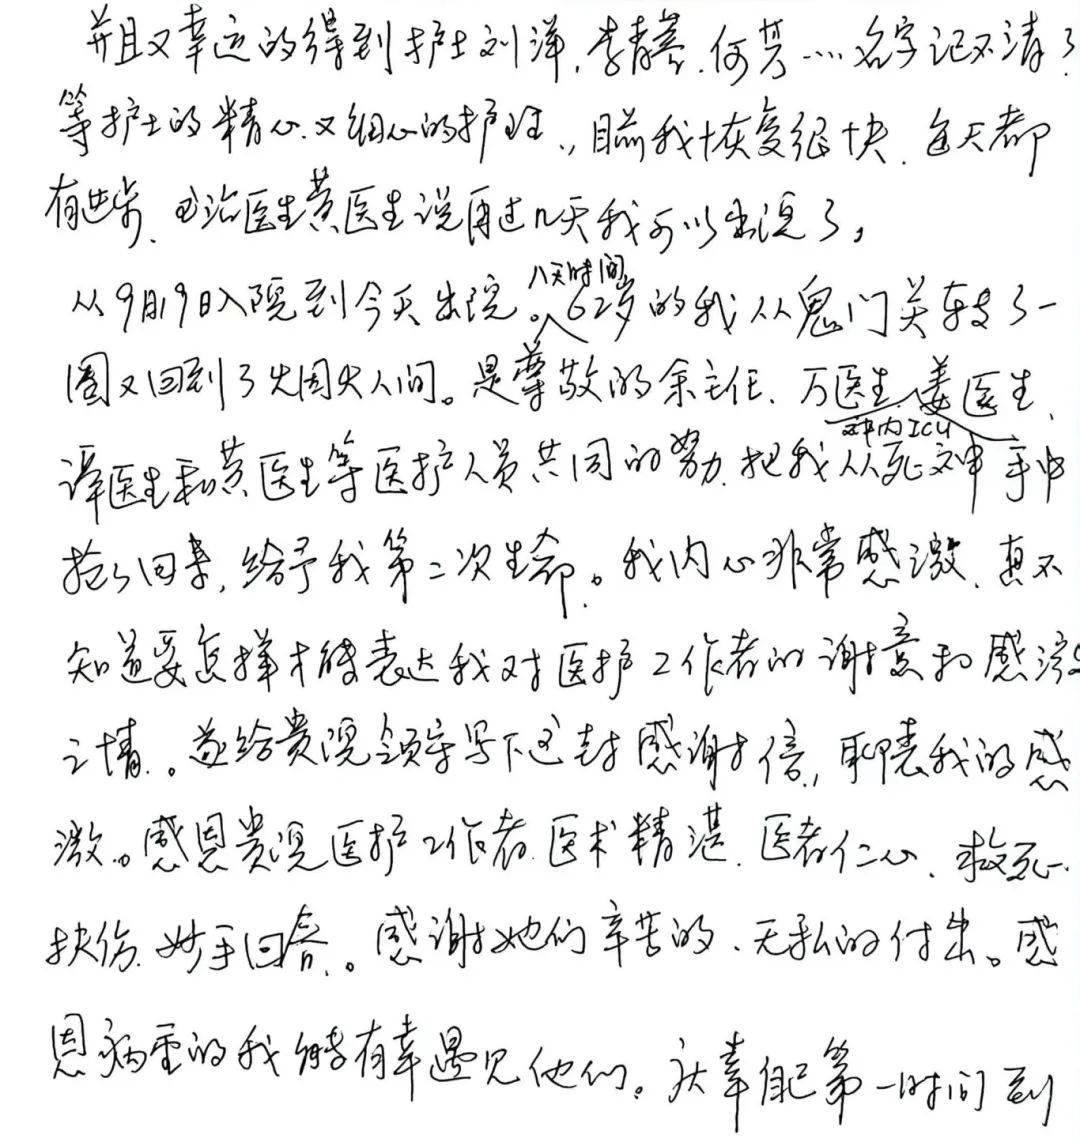 并且又幸运的得到护士刘洋.李青蓉.何芳….名字记不清了
等护士的精心.又细心的护理.,目前我恢复很快.每天都
有进步.主治医生黄医生说再过几天我可以出院了,
八天时间
从9月19日入院到今天出院。62岁的我从鬼门关转了一
圈又回到了大同大人间。是尊敬的余主任.万医生.姜医生.
神内ICU
谭医生和黄医生等医护人员共同的努力.把我从死神手中
抢了回来,给予我第二次生命。我内心非常感激.真不
知道要怎样才能表达我对医护工作者的谢意和感激
之情.。故给贵院领导写下这封感谢信,聊表我的感
激。感恩贵院医护工作者.医术精湛.医者仁心.救死
扶伤.妙手回春.。感谢她们辛苦的.无私的付出。感
恩病重的我能有幸遇见他们。庆幸自己第一时间到